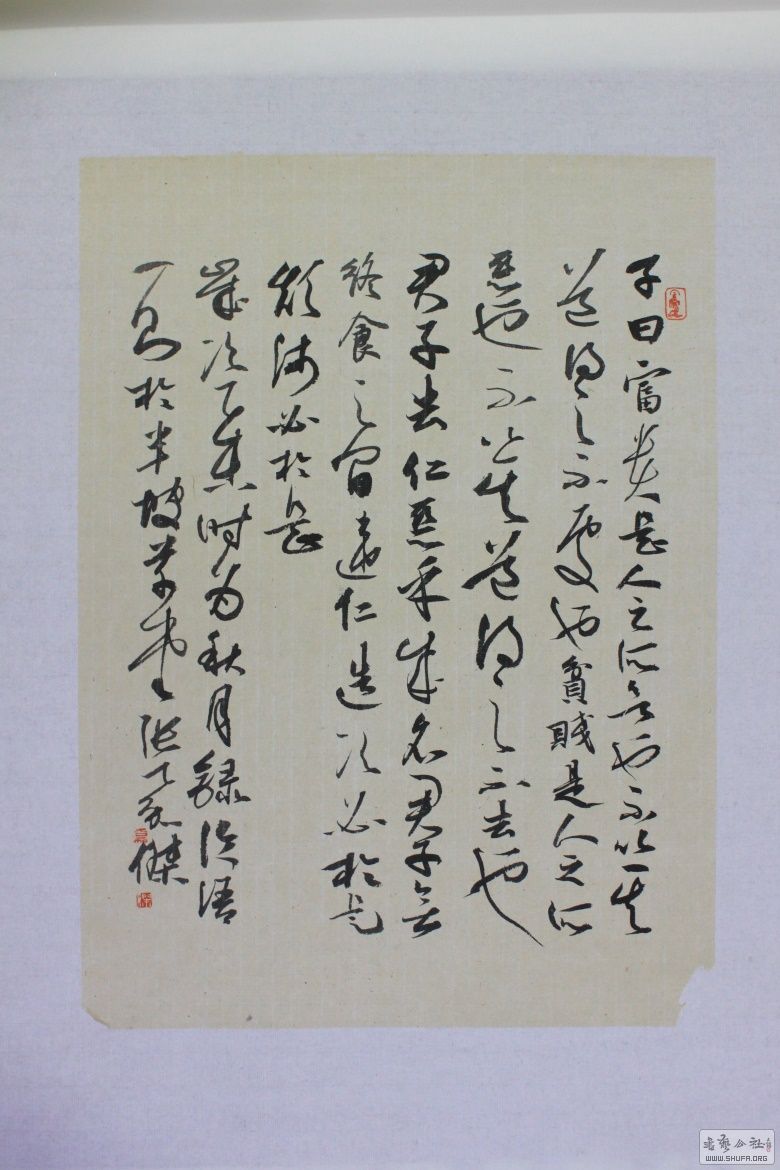 子曰富貴是人之所欲也不以其
道得之不處也貧賤是人之所
惡也不以其道得之不去也
君子去仁惡乎成名君子無
終食之間違仁造次必於是
顛沛必於是
歲次乙未時為秋月錄論語
一則於半坡草堂張傑
書藝公社
WWW.SHUFA.ORG